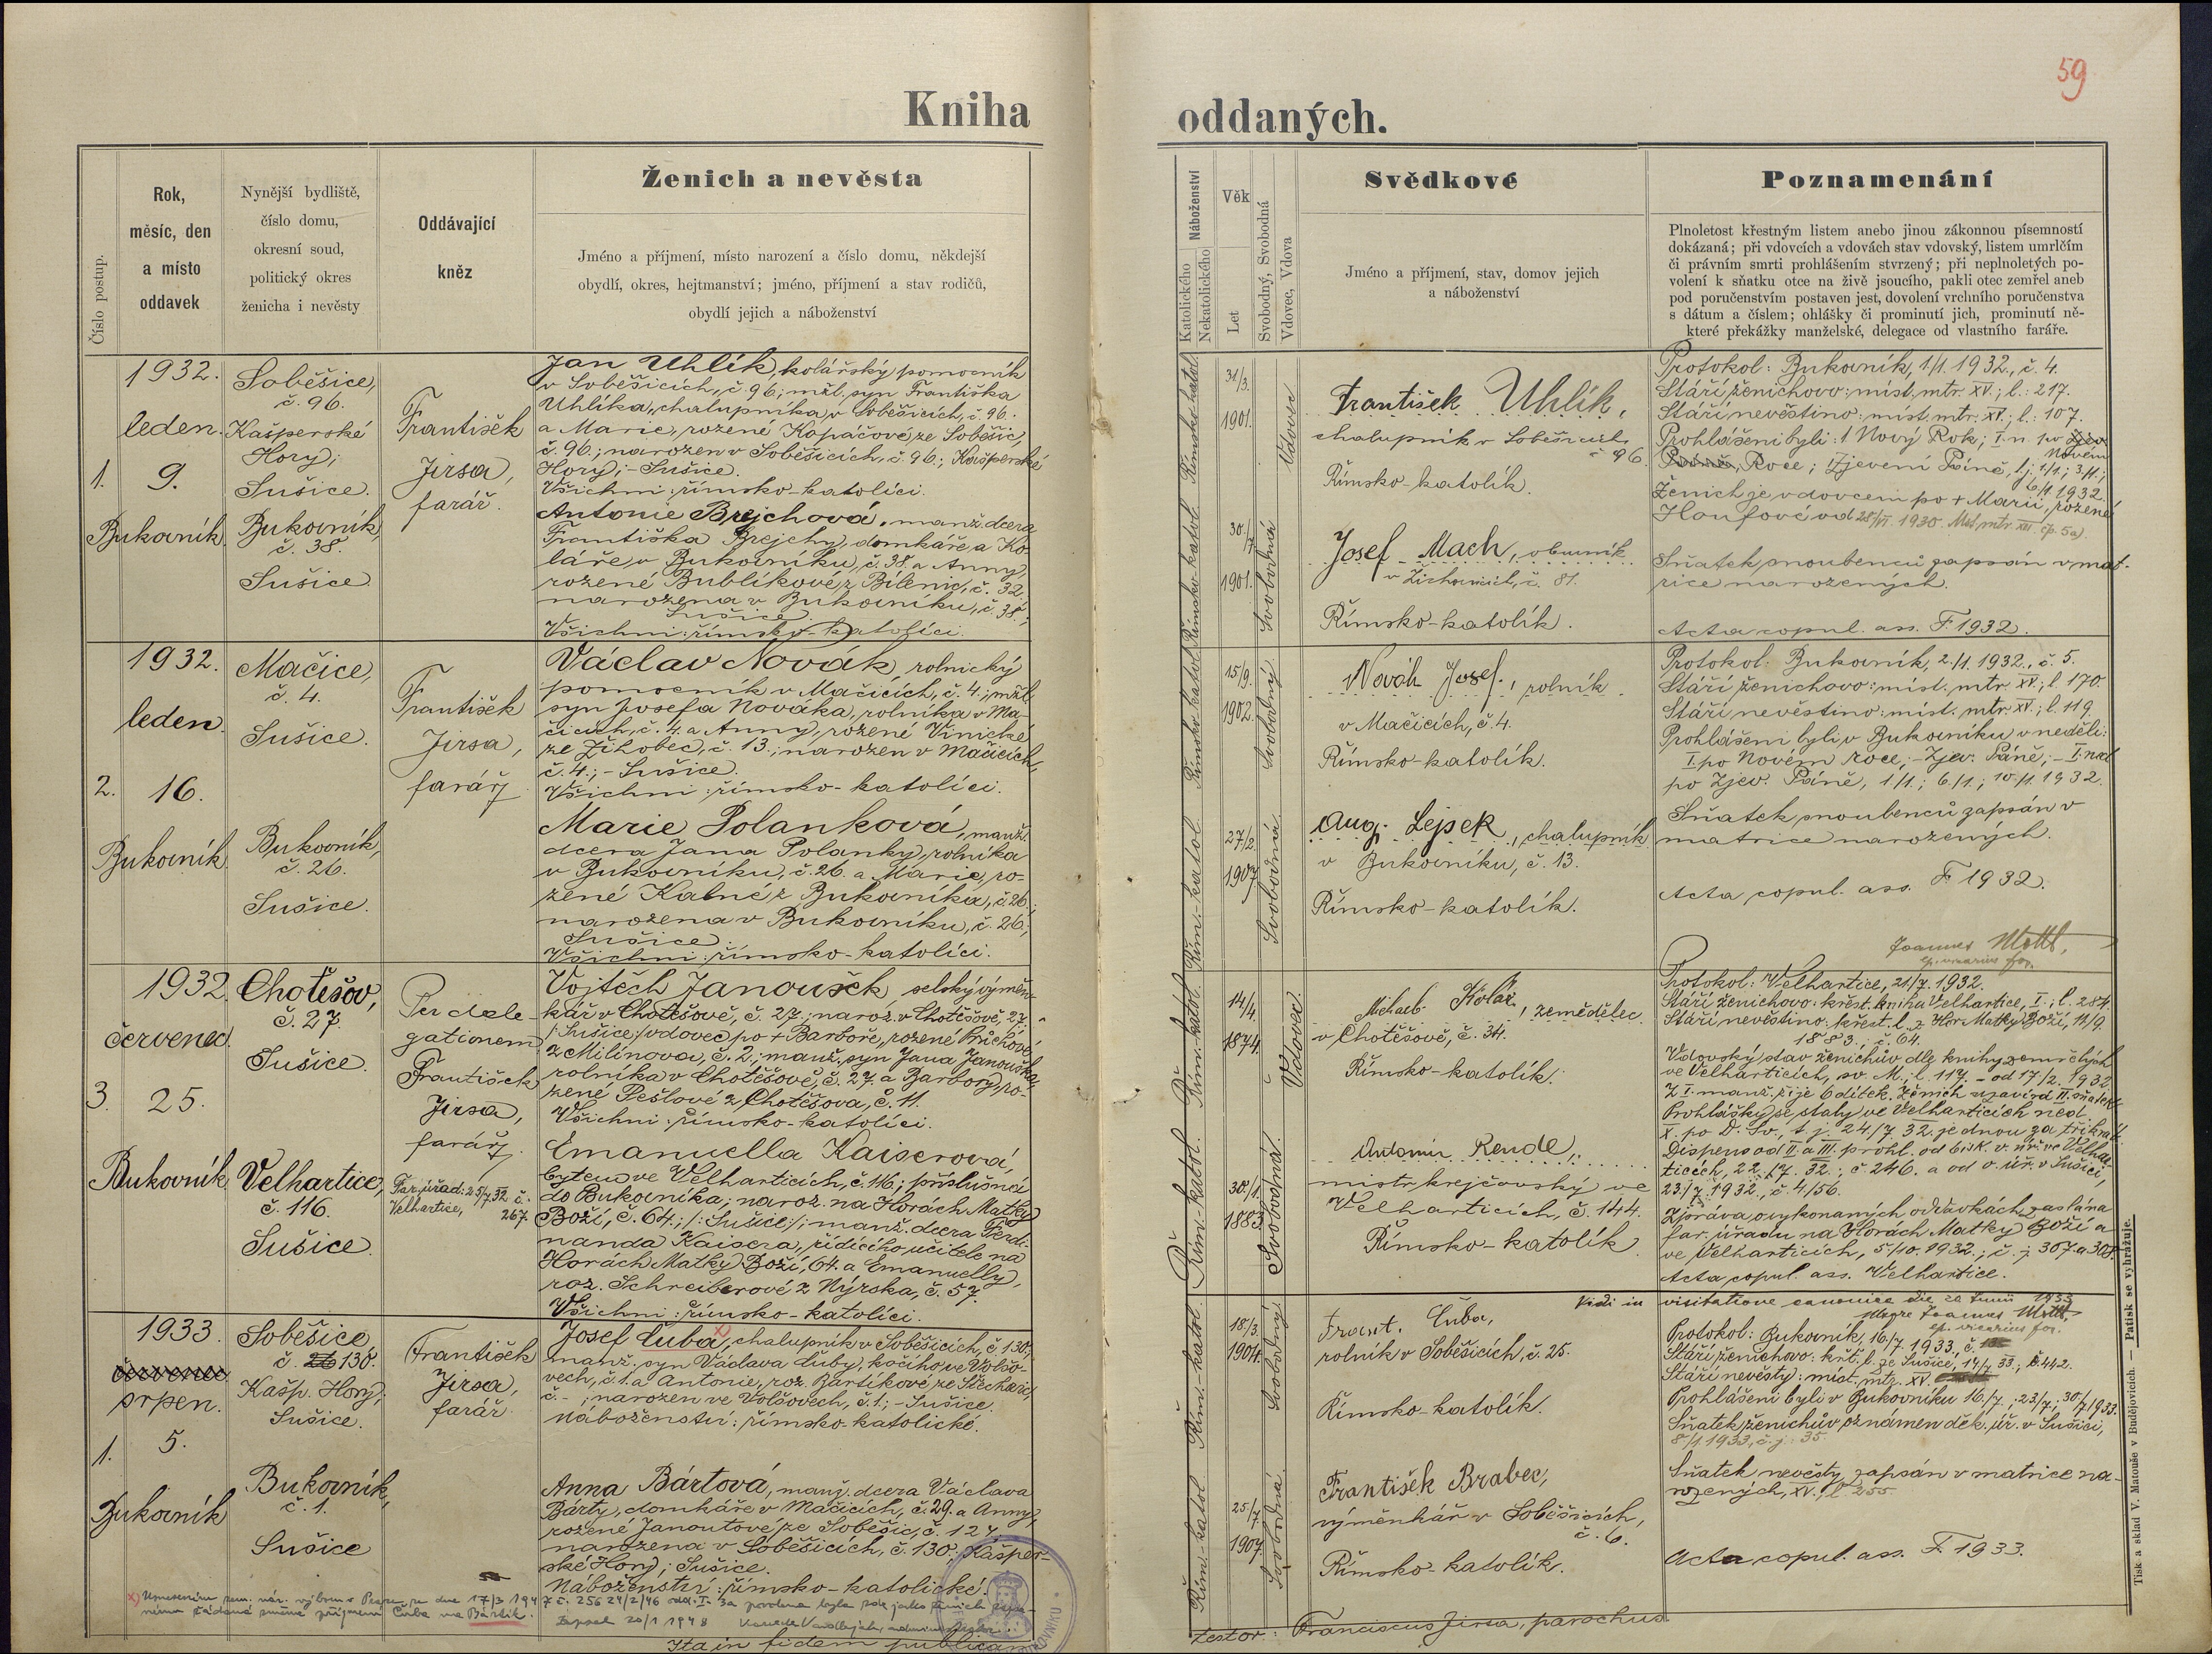 59
Kniha oddaných.
Číslo postup.
Rok,
měsíc, den
a místo
oddavek
Nynější bydliště,
číslo domu,
okresní soud,
politický okres
ženicha i nevěsty
Oddávající
kněz
Ženich a nevěsta
Jméno a příjmení, místo narození a číslo domu, někdejší
obydlí, okres, hejtmanství; jméno, příjmení a stav rodičů,
obydlí jejich a náboženství
Náboženství
Katolického
Nekatolického
Věk
Let
Svobodný, Svobodná
Vdovec, Vdova
Svědkové
Jméno a příjmení, stav, domov jejich
a náboženství
Poznamenání
Plnoletost křestným listem anebo jinou zákonnou písemností
dokázaná; při vdovcích a vdovách stav vdovský, listem umrlčím
či právním smrti prohlášením stvrzený; při neplnoletých po-
volení k sňatku otce na živě jsoucího, pakli otec zemřel aneb
pod poručenstvím postaven jest, dovolení vrchního poručenstva
s dátum a číslem; ohlášky či prominutí jich, prominutí ně-
které překážky manželské, delegace od vlastního faráře.
1932.
leden.
1. 9.
Bukovník.
Soběšice,
č. 96.
Kašperské
Hory;
Sušice.
Bukovník,
č. 38.
Sušice.
František
Jirsa,
farář.
Jan Uhlík, kolářský pomocník
v Soběšicích, č. 96; mžl. syn Františka
Uhlíka, chalupníka v Soběšicích, č. 96.
a Marie, rozené Kopáčové, ze Soběšic,
č. 96.; narozen v Soběšicích, č. 96.; Kašperské
Hory; - Sušice.
Všichni: římsko-katolíci.
Antonie Brejchová, manž. dcera
Františka Brejchy, domkáře a Ko-
láře, v Bukovníku, č. 38. a Anny,
rozené Bublíkové, z Bílenic, č. 32.
narozena v Bukovníku, č. 38.;
Sušice.
Všichni: římsko-katolíci.
Římsko-katol.
31/3.
1901.
Vdovec
František Uhlík,
chalupník v Soběšicích
č 96.
Římsko-katolík.
Římsko-katol.
30./7.
1901.
Svobodná
Josef Mach, obuvník
v Žichovicích, č. 81.
Římsko-katolík.
Protokol: Bukovník, 1/1. 1932., č. 4.
Stáří ženichovo: míst. mtr. XV.; l.: 217.
Stáří nevěstino: míst. mtr. XV.; l.: 107.
Prohlášeni byli: 1. Nový Rok; I. n. po
Novém
Roce; Zjevení Páně, t.j. 1/1.; 3/1.;
6/1 1932.
Ženich je vdovcem po + Marii, rozené
Houfové od 28/VI. 1930.
Sňatek snoubenců zapsán v mat-
rice narozených.
Acta copul. ass. F. 1932.
1932.
leden.
2. 16.
Bukovník.
Mačice,
č. 4.
Sušice.
Bukovník,
č. 26.
Sušice.
František
Jirsa,
farář
Václav Novák, rolnický
pomocník v Mačicích, č. 4.; mžl.
syn Josefa Nováka, rolníka v Ma-
čicích, č. 4. a Anny, rozené Vinické
ze Žihobec, č. 13.; narozen v Mačicích,
č. 4.; - Sušice.
Všichni: římsko-katolíci.
Marie Polanková, manž.
dcera Jana Polanky, rolníka
v Bukovníku, č. 26. a Marie, ro-
zené Kalné, z Bukovníka, č. 26.;
narozena v Bukovníku, č. 26.;
Sušice.
Všichni: římsko-katolíci.
Římsko-katol.
15/9.
1902.
Svobodný
Novák Josef, rolník
v Mačicích, č. 4.
Římsko-katolík.
Řím.-katol.
27/2.
1907
Svobodná
Aug. Lejsek, chalupník
v Bukovníku, č. 13.
Římsko-katolík.
Protokol: Bukovník, 2./1. 1932., č. 5.
Stáří ženichovo: míst. mtr. XV.; l. 170.
Stáří nevěstino: míst. mtr. XV.; l. 119.
Prohlášeni byli v Bukovníku v neděli:
I. po Novém roce; - Zjev. Páně; - I. ned.
po Zjev. Páně, 1/1.; 6/1.; 10/1. 1932.
Sňatek snoubenců zapsán v
matrice narozených.
Acta copul. ass. F. 1932.
Joannes Mottl,
ep. vicarius for.
1932.
červenec.
3. 25.
Bukovník
Chotěšov,
č. 27.
Sušice.
Velhartice,
č. 116.
Sušice.
Per dele-
gationem
František
Jirsa,
farář
Far. úřad: 25/7 32 č.
Velhartice, 267.
Vojtěch Janoušek, selský výměn-
kář v Chotěšově, č. 27.; naroz. v Chotěšově, 27.;
/: Sušice:/ vdovec po + Barboře, rozené Průchové
z Milínova, č. 2.; manž. syn Jana Janouška,
rolníka v Chotěšově, č. 27. a Barbory, ro-
zené Pešlové z Chotěšova, č. 11.
Všichni: římsko-katolíci.
Emanuella Kaiserová,
bytem ve Velharticích, č. 116; příslušnicí
do Bukovníka; naroz. na Horách Matky
Boží, č. 64.; /: Sušice:/; manž. dcera Ferdi-
nanda Kaisera, řídícího učitele na
Horách Matky Boží, 64. a Emanuelly
roz. Schreiberové z Nýrska, č. 57.
Všichni: římsko-katolíci.
Řím.-katol.
14/4.
1874.
Vdovec.
Michael Kolář, zemědělec
v Chotěšově, č. 34.
Římsko-katolík.
Řím.-katol.
30./1.
1883.
Svobodná.
Antonín Rendl,
mistr krejčovský ve
Velharticích, č. 144.
Římsko-katolík
Protokol: Velhartice, 21/7. 1932.
Stáří ženichovo: křest. kniha Velhartice, I.; l. 284.
Stáří nevěstino: křest. l. z Hor Matky Boží, 11/9.
1883.; č. 64.
Vdovský stav ženichův dle knihy zemřelých
ve Velharticích, sv. M.; l. 117. - od 17/2. 1932.
Z I. manž. žije 6 dítek. Ženich uzavírá II. sňatek.
Prohlášky se staly ve Velharticích ned.
X. po D. Sv., t. j. 24/7 32. jednou za třikrát.
Dispens od II. a III. prohl. od bisk. v. úř. ve Velhar-
ticích, 22./7. 32.; č. 246. a od o. úř. v Sušici,
23./7. 1932., č. 4./56.
Zpráva o vykonaných oddavkách zaslána
far. úřadu na Horách Matky Boží a
ve Velharticích, 5/10. 1932.; č. j. 307. a 308.
Acta copul. ass. Velhartice.
Vidi in visitatione canonica die 22 Junii 1933
Joannes Mottl,
ep. vicarius for.
1933.
srpen.
1. 5.
Bukovník
Soběšice
č. 130.
Kašp. Hory;
Sušice.
Bukovník,
č. 1.
Sušice
František
Jirsa,
farář.
Josef Čuba x), chalupník v Soběšicích, č. 130.;
manž. syn Václava Čuby, kočího ve Volšo-
vech, č. 1. a Antonie, roz. Bartíkové ze
č. - ; narozen ve Volšovech, č. 1.; - Sušice.
Náboženství: římsko-katolické.
Anna Bártová, manž. dcera Václava
Bárty, domkáře v Mačicích, č. 29. a Anny,
rozené Janoutové, ze Soběšic, č. 127
narozena v Soběšicích, č. 130.; Kašper-
ské Hory; Sušice.
Náboženství: římsko-katolické.
Řím.-katol.
18/3.
1904.
Svobodný
Frant. Čuba,
rolník v Soběšicích, č. 25.
Římsko-katolík.
Řím.-katol.
25/7.
1907.
Svobodná
František Brabec,
výměnkář v Soběšicích,
č. 6.
Římsko-katolík.
Protokol: Bukovník, 16./7. 1933, č.
Stáří ženichovo: křt. l. ze Sušice, 14/7 33.; č. 442.
Stáří nevěsty: míst. mtr. XV.
Prohlášeni byli v Bukovníku 16./7.; 23/7.; 30/7 1933.
Sňatek ženichův oznámen děk. úř. v Sušici,
1933, č. j. 35.
Sňatek nevěsty zapsán v matrice na-
rozených, XV., l. 255.
Acta copul. ass. F. 1933.
x) Usnesením zem. nár. výboru v Praze ze dne 17/3 1947 č.
změna příjmení Čuba na Bartík.
Zapsal 20/1 1948
Ita in fidem publicam
testor: Franciscus Jirsa, parochus.
Tisk a sklad V. Matouše v Budějovicích. — Patisk se vyhražuje.